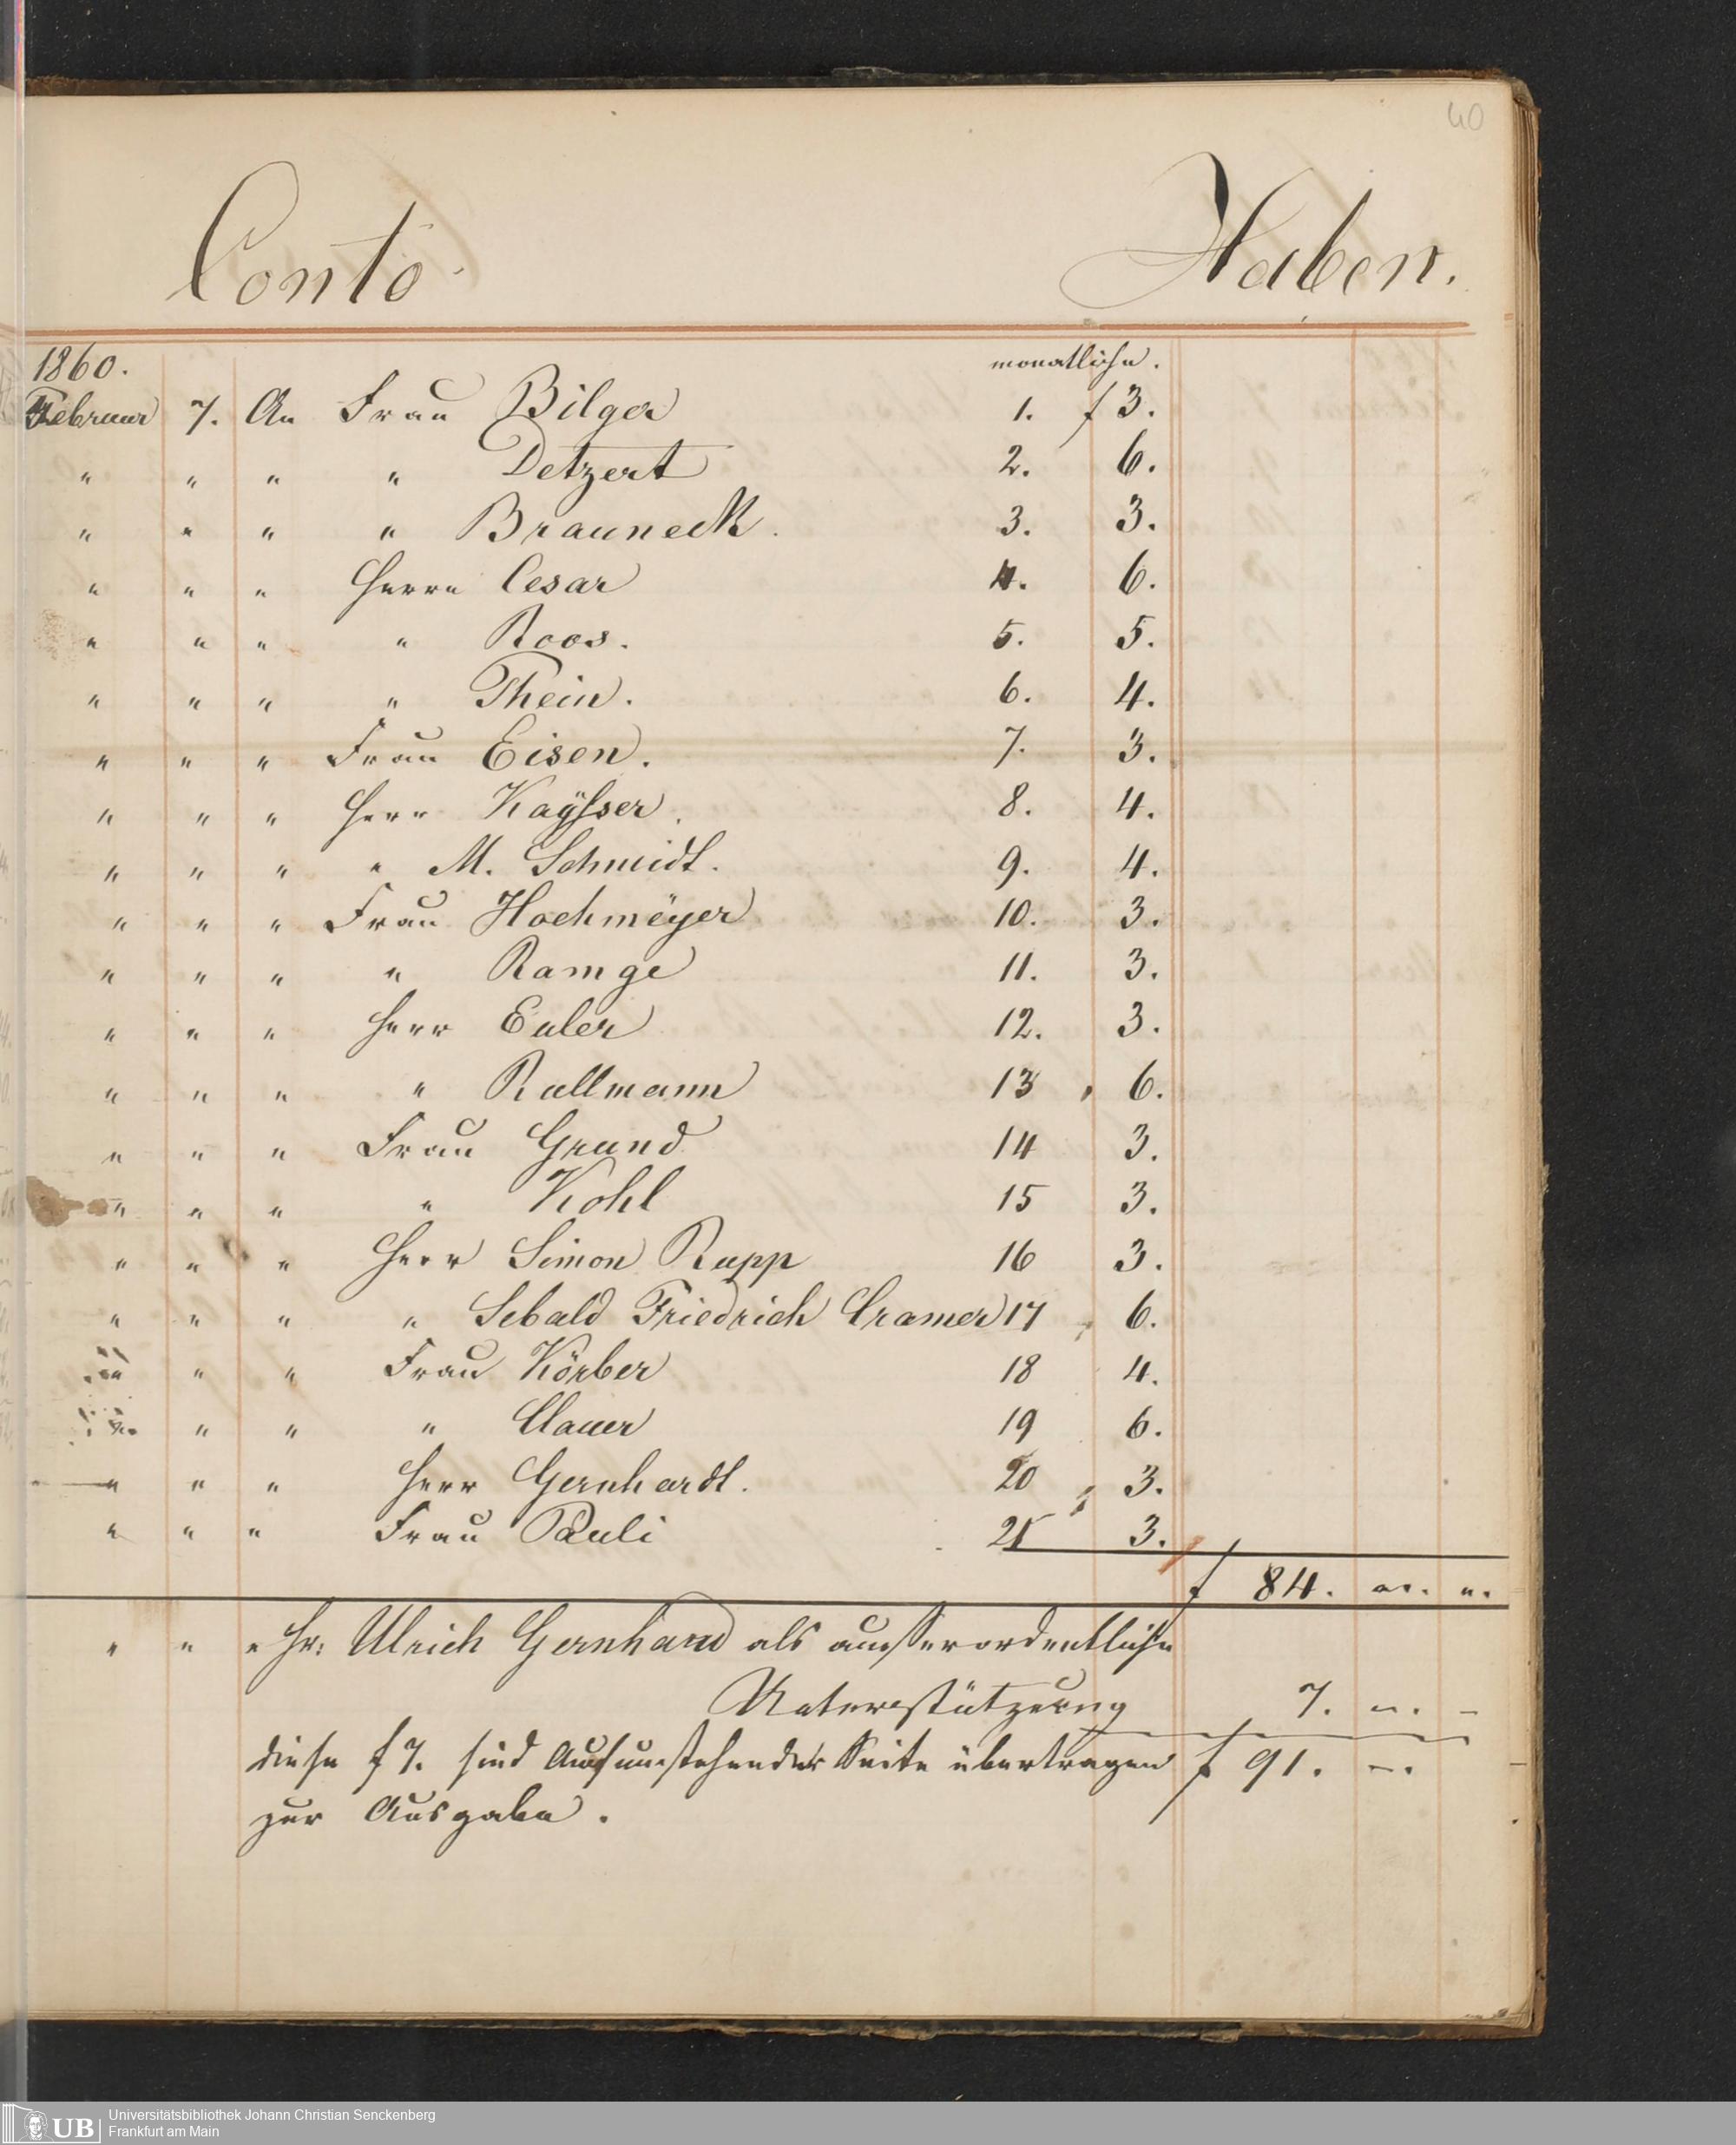 40
Conto Haben.
1860. monatliche.
Februar 7. An Frau Bilger 1. f 3.
" " " " Detzert 2. 6.
" " " " Brauneck. 3. 3.
" " " Herrn Cesar 4. 6.
" " " " Roos. 5. 5.
" " " " Thein. 6. 4.
" " " Frau Eisen. 7. 3.
" " " Herr Kaÿsser. 8. 4.
" " " " M. Schmidt. 9. 4.
" " " Frau Hochmëyer 10. 3.
" " " " Ramge 11. 3.
" " " Herr Euler 12. 3.
" " " " Rullmann 13 " 6.
" " " Frau Grund 14 3.
" " " " Kohl 15 3.
" " " Herr Simon Rupp 16 3.
" " " " Sebald Friedrich Cramer 17 " 6.
" " " Frau Körber 18 4.
" " " " Clauer 19 6.
" " " Herr Gernhardt. 20 " 3.
" " " Frau Pauli 21 3.
f 84. " . " .
" " " Hr: Ulrich Gernhard als ausserordentliche
Unterstützung 7. " . -
diese f 7. sind Auf umstehender Seite übertragen f 91. - .
zur Ausgabe.
UB Universitätsbibliothek Johann Christian Senckenberg
Frankfurt am Main